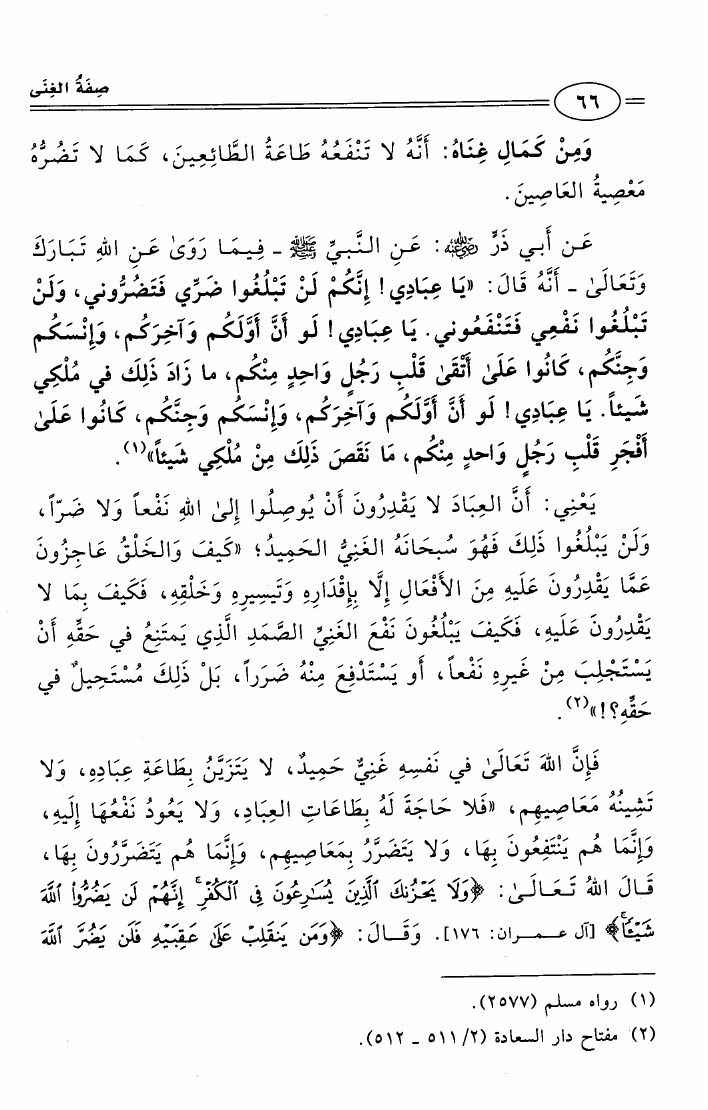 صِفَةُ الغِنَى
٦٦
وَمِنْ كَمَالِ غِنَاهُ: أَنَّهُ لا تَنْفَعُهُ طَاعَةُ الطَّائِعِينَ، كَمَا لا تَضُرُّهُ
مَعْصِيةُ العَاصِينَ.
عَن أَبي ذَرٍّ رضي الله عنه: عَنِ النَّبيِّ ﷺ - فِيمَا رَوَىٰ عَنِ اللهِ تَبَارَكَ
وَتَعَالَىٰ - أَنَّهُ قَالَ: «يَا عِبَادِي! إِنَّكُمْ لَنْ تَبْلُغُوا ضَرِّي فَتَضُرُّوني، وَلَنْ
تَبْلُغُوا نَفْعِي فَتَنْفَعُوني. يَا عِبَادِي! لَو أَنَّ أَوَّلَكُم وَآخِرَكُم، وَإِنْسَكُم
وَجِنَّكُم، كَانُوا عَلَىٰ أَتْقَىٰ قَلْبِ رَجُلٍ وَاحِدٍ مِنْكُم، ما زَادَ ذَلِكَ في مُلْكِي
شَيئاً. يَا عِبَادِي! لَو أَنَّ أَوَّلَكُم وَآخِرَكُم، وَإِنْسَكُم وَجِنَّكُم، كَانُوا عَلَىٰ
أَفْجَرِ قَلْبِ رَجُلٍ وَاحدٍ مِنْكُم، مَا نَقَصَ ذَلِكَ مِنْ مُلْكِي شَيئاً»(١).
يَعْنِي: أَنَّ العِبَادَ لا يَقْدِرُونَ أَنْ يُوصِلُوا إِلىٰ اللهِ نَفْعاً وَلا ضَرّاً،
وَلَنْ يَبْلُغُوا ذَلِكَ فَهُوَ سُبحَانَهُ الغَنِيُّ الحَمِيدُ؛ «كَيفَ وَالخَلْقُ عَاجِزُونَ
عَمَّا يَقْدِرُونَ عَلَيهِ مِنَ الأَفْعَالِ إِلَّا بِإِقْدَارِهِ وَتَيسِيرِهِ وَخَلْقِهِ، فَكَيفَ بِمَا لا
يَقْدِرُونَ عَلَيهِ، فَكَيفَ يَبْلُغُونَ نَفْعَ الغَنِيِّ الصَّمَدِ الَّذِي يَمتَنِعُ في حَقِّهِ أَنْ
يَسْتَجْلِبَ مِنْ غَيرِهِ نَفْعاً، أَو يَسْتَدْفِعَ مِنْهُ ضَرَراً، بَلْ ذَلِكَ مُسْتَحِيلٌ في
حَقِّهِ؟!»(٢).
فَإِنَّ اللهَ تَعَالَىٰ في نَفسِهِ غَنِيٌّ حَمِيدٌ، لا يَتَزَيَّنُ بِطَاعَةِ عِبَادِهِ، وَلا
تَشِينُهُ مَعَاصِيهِم، «فَلا حَاجَةَ لَهُ بِطَاعَاتِ العِبَادِ، وَلا يَعُودُ نَفْعُهَا إِلَيهِ،
وَإِنَّمَا هُم يَنْتَفِعُونَ بِهَا، وَلا يَتَضَرَّرُ بِمَعَاصِيهِم، وَإِنَّمَا هُم يَتَضَرَّرُونَ بِهَا،
قَالَ اللهُ تَعَالَىٰ: ﴿وَلَا يَحْزُنكَ ٱلَّذِينَ يُسَٰرِعُونَ فِى ٱلْكُفْرِ ۚ إِنَّهُمْ لَن يَضُرُّوا۟ ٱللَّهَ
شَيْـًٔا ۗ﴾ [آل عمران: ١٧٦]. وَقَالَ: ﴿وَمَن يَنقَلِبْ عَلَىٰ عَقِبَيْهِ فَلَن يَضُرَّ ٱللَّهَ
(١) رواه مسلم (٢٥٧٧).
(٢) مفتاح دار السعادة (٢/ ٥١١ - ٥١٢).